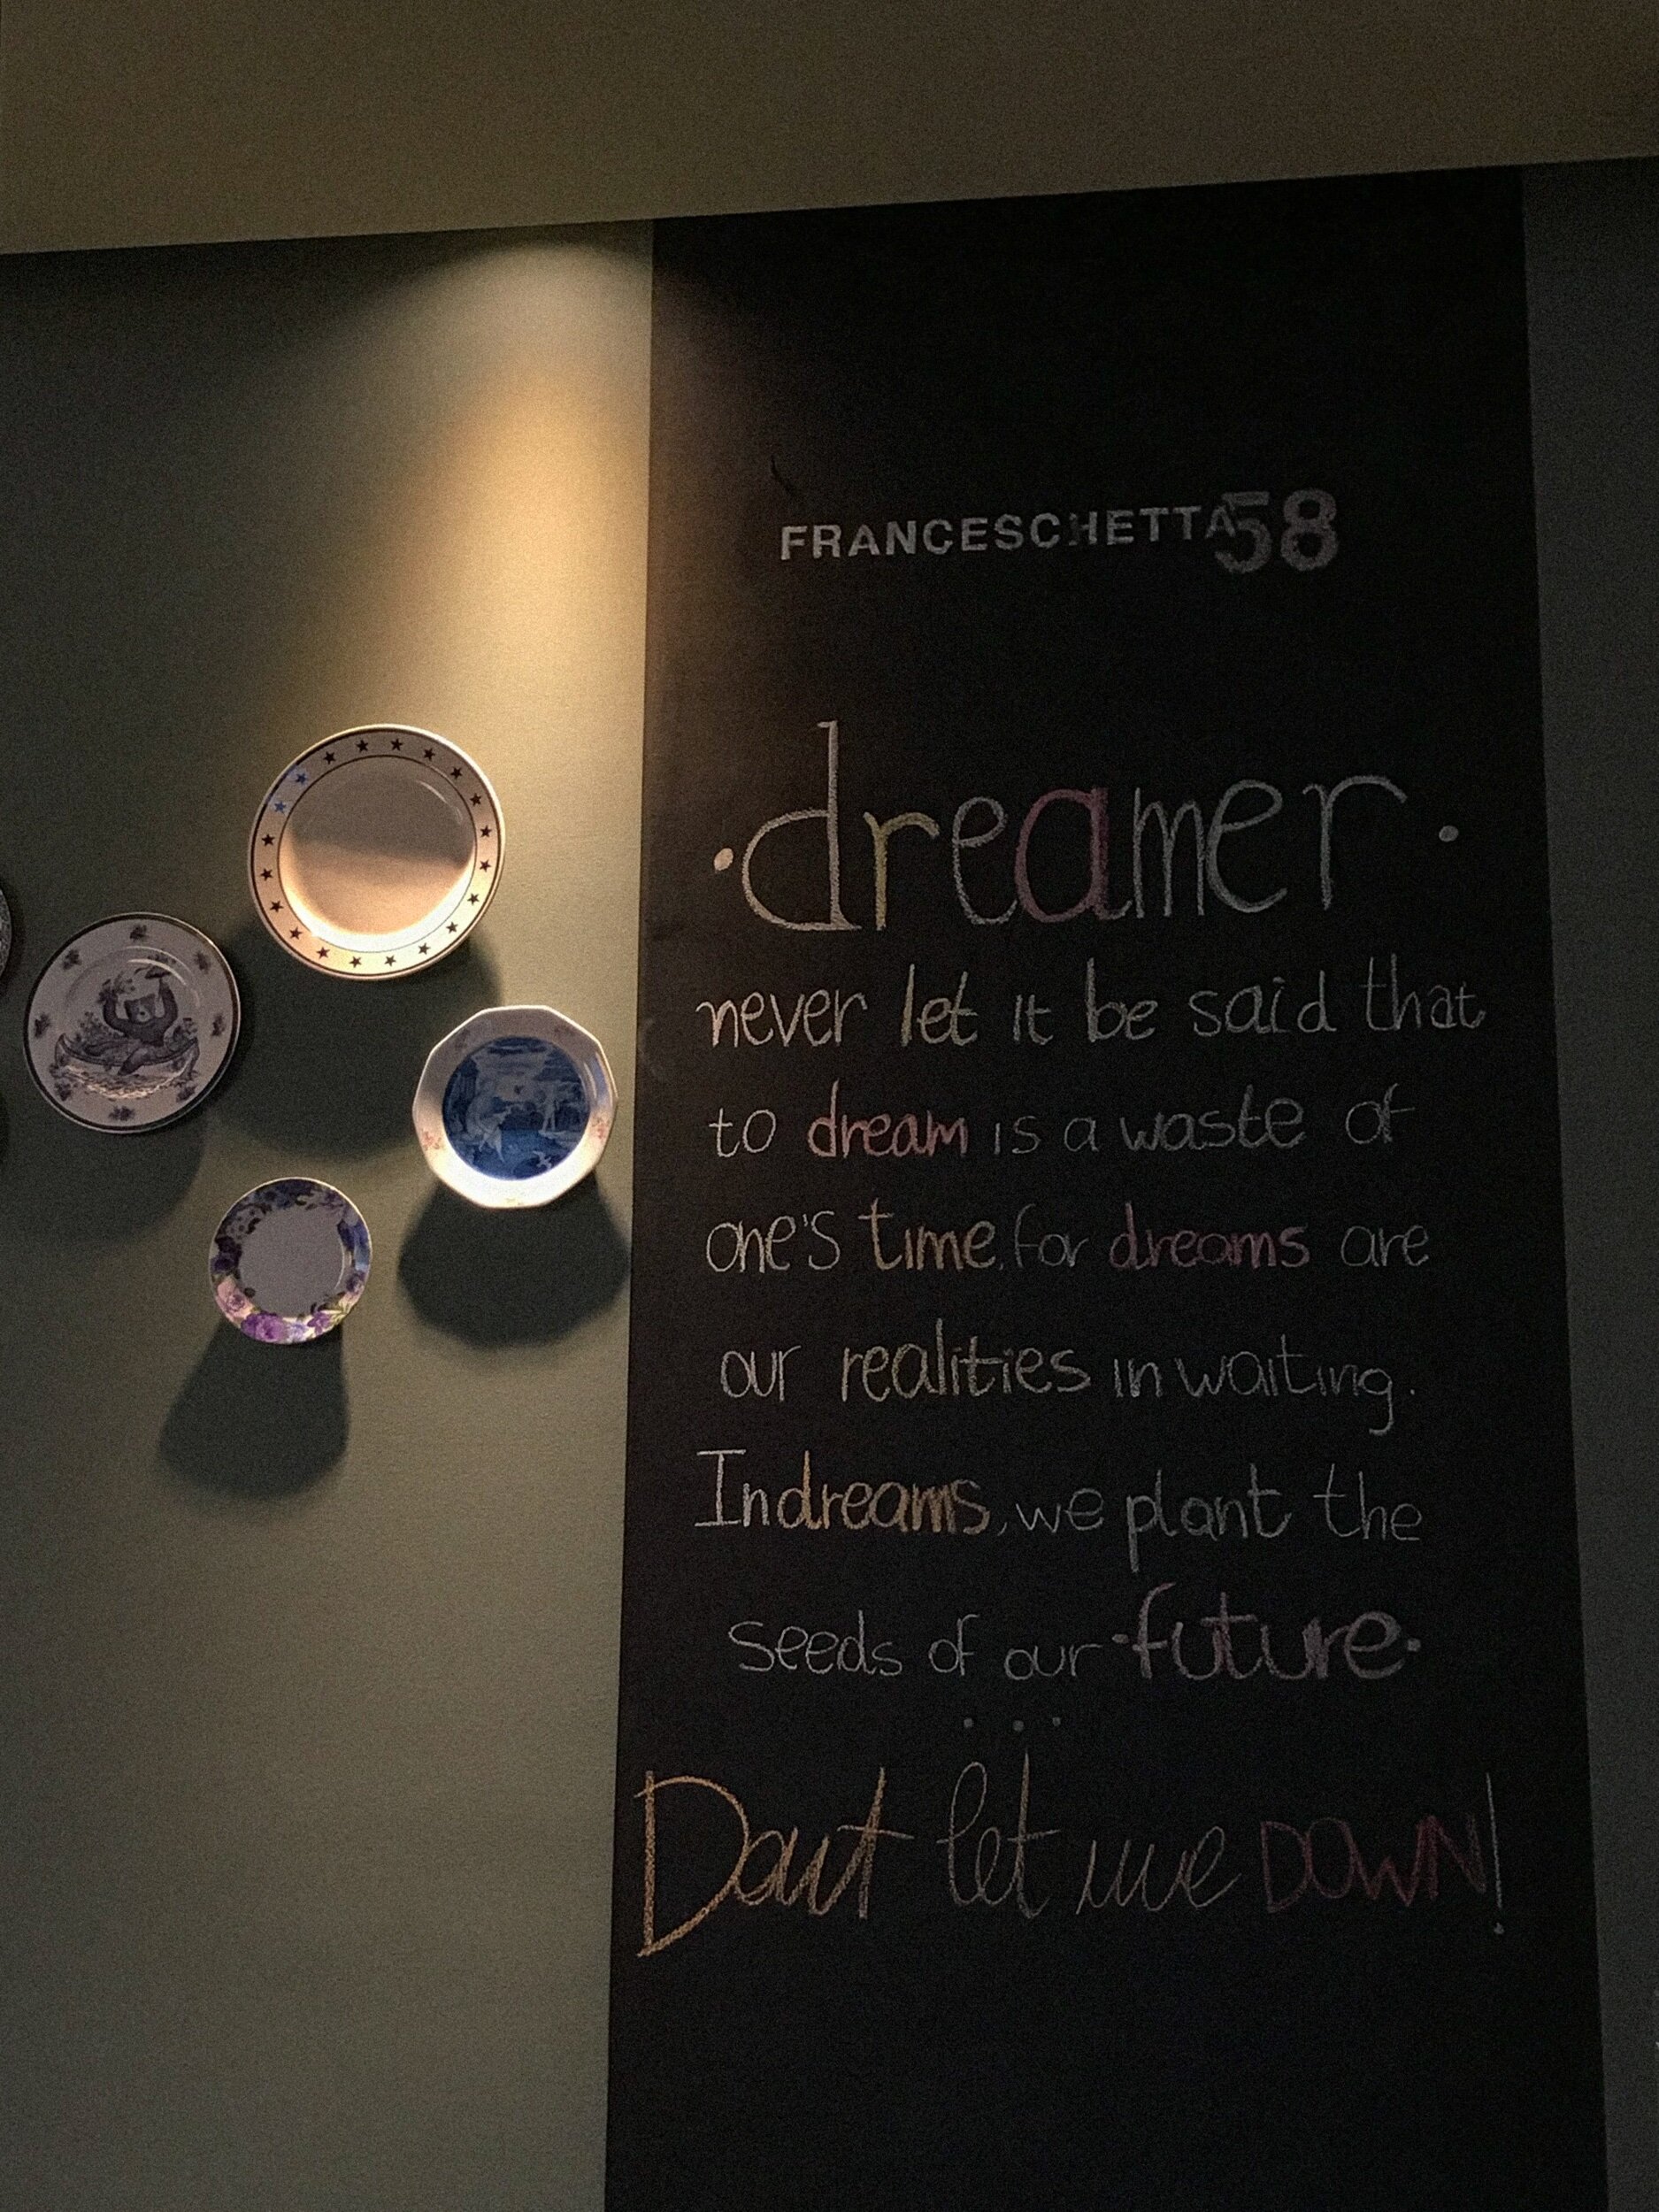 FRANCESCHETTA58
·dreamer·
never let it be said that
to dream is a waste of
one's time, for dreams are
our realities in waiting.
In dreams, we plant the
seeds of our ·future·
...
Dont let me DOWN!